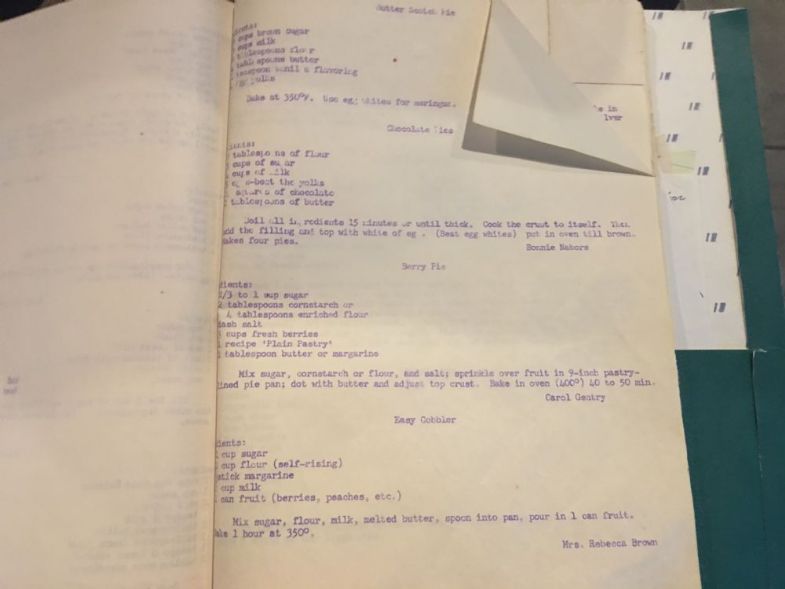 Butter Scotch Pie
cups brown sugar
cups milk
tablespoons flour
tablespoons butter
teaspoon flavoring
yolks
Bake at 350°F. Use egg whites for meringue.
in
Chocolate Pies
tablespoons of flour
cups of sugar
cups of milk
beat the yolks
squares of chocolate
tablespoons of butter
Boil all ingredients 15 minutes or until thick. Cook the crust to itself. Then
add the filling and top with white of eg . (Beat egg whites) put in oven till brown.
akes four pies.
Bonnie Nabors
Berry Pie
dients:
2/3 to 1 cup sugar
2 tablespoons cornstarch or
4 tablespoons enriched flour
dash salt
cups fresh berries
recipe 'Plain Pastry'
tablespoon butter or margarine
Mix sugar, cornstarch or flour, and salt; sprinkle over fruit in 9-inch pastry-
lined pie pan; dot with butter and adjust top crust. Bake in oven (400°) 40 to 50 min.
Carol Gentry
Easy Cobbler
dients:
cup sugar
cup flour (self-rising)
stick margarine
cup milk
can fruit (berries, peaches, etc.)
Mix sugar, flour, milk, melted butter, spoon into pan, pour in 1 can fruit.
ake 1 hour at 350°.
Mrs. Rebecca Brown